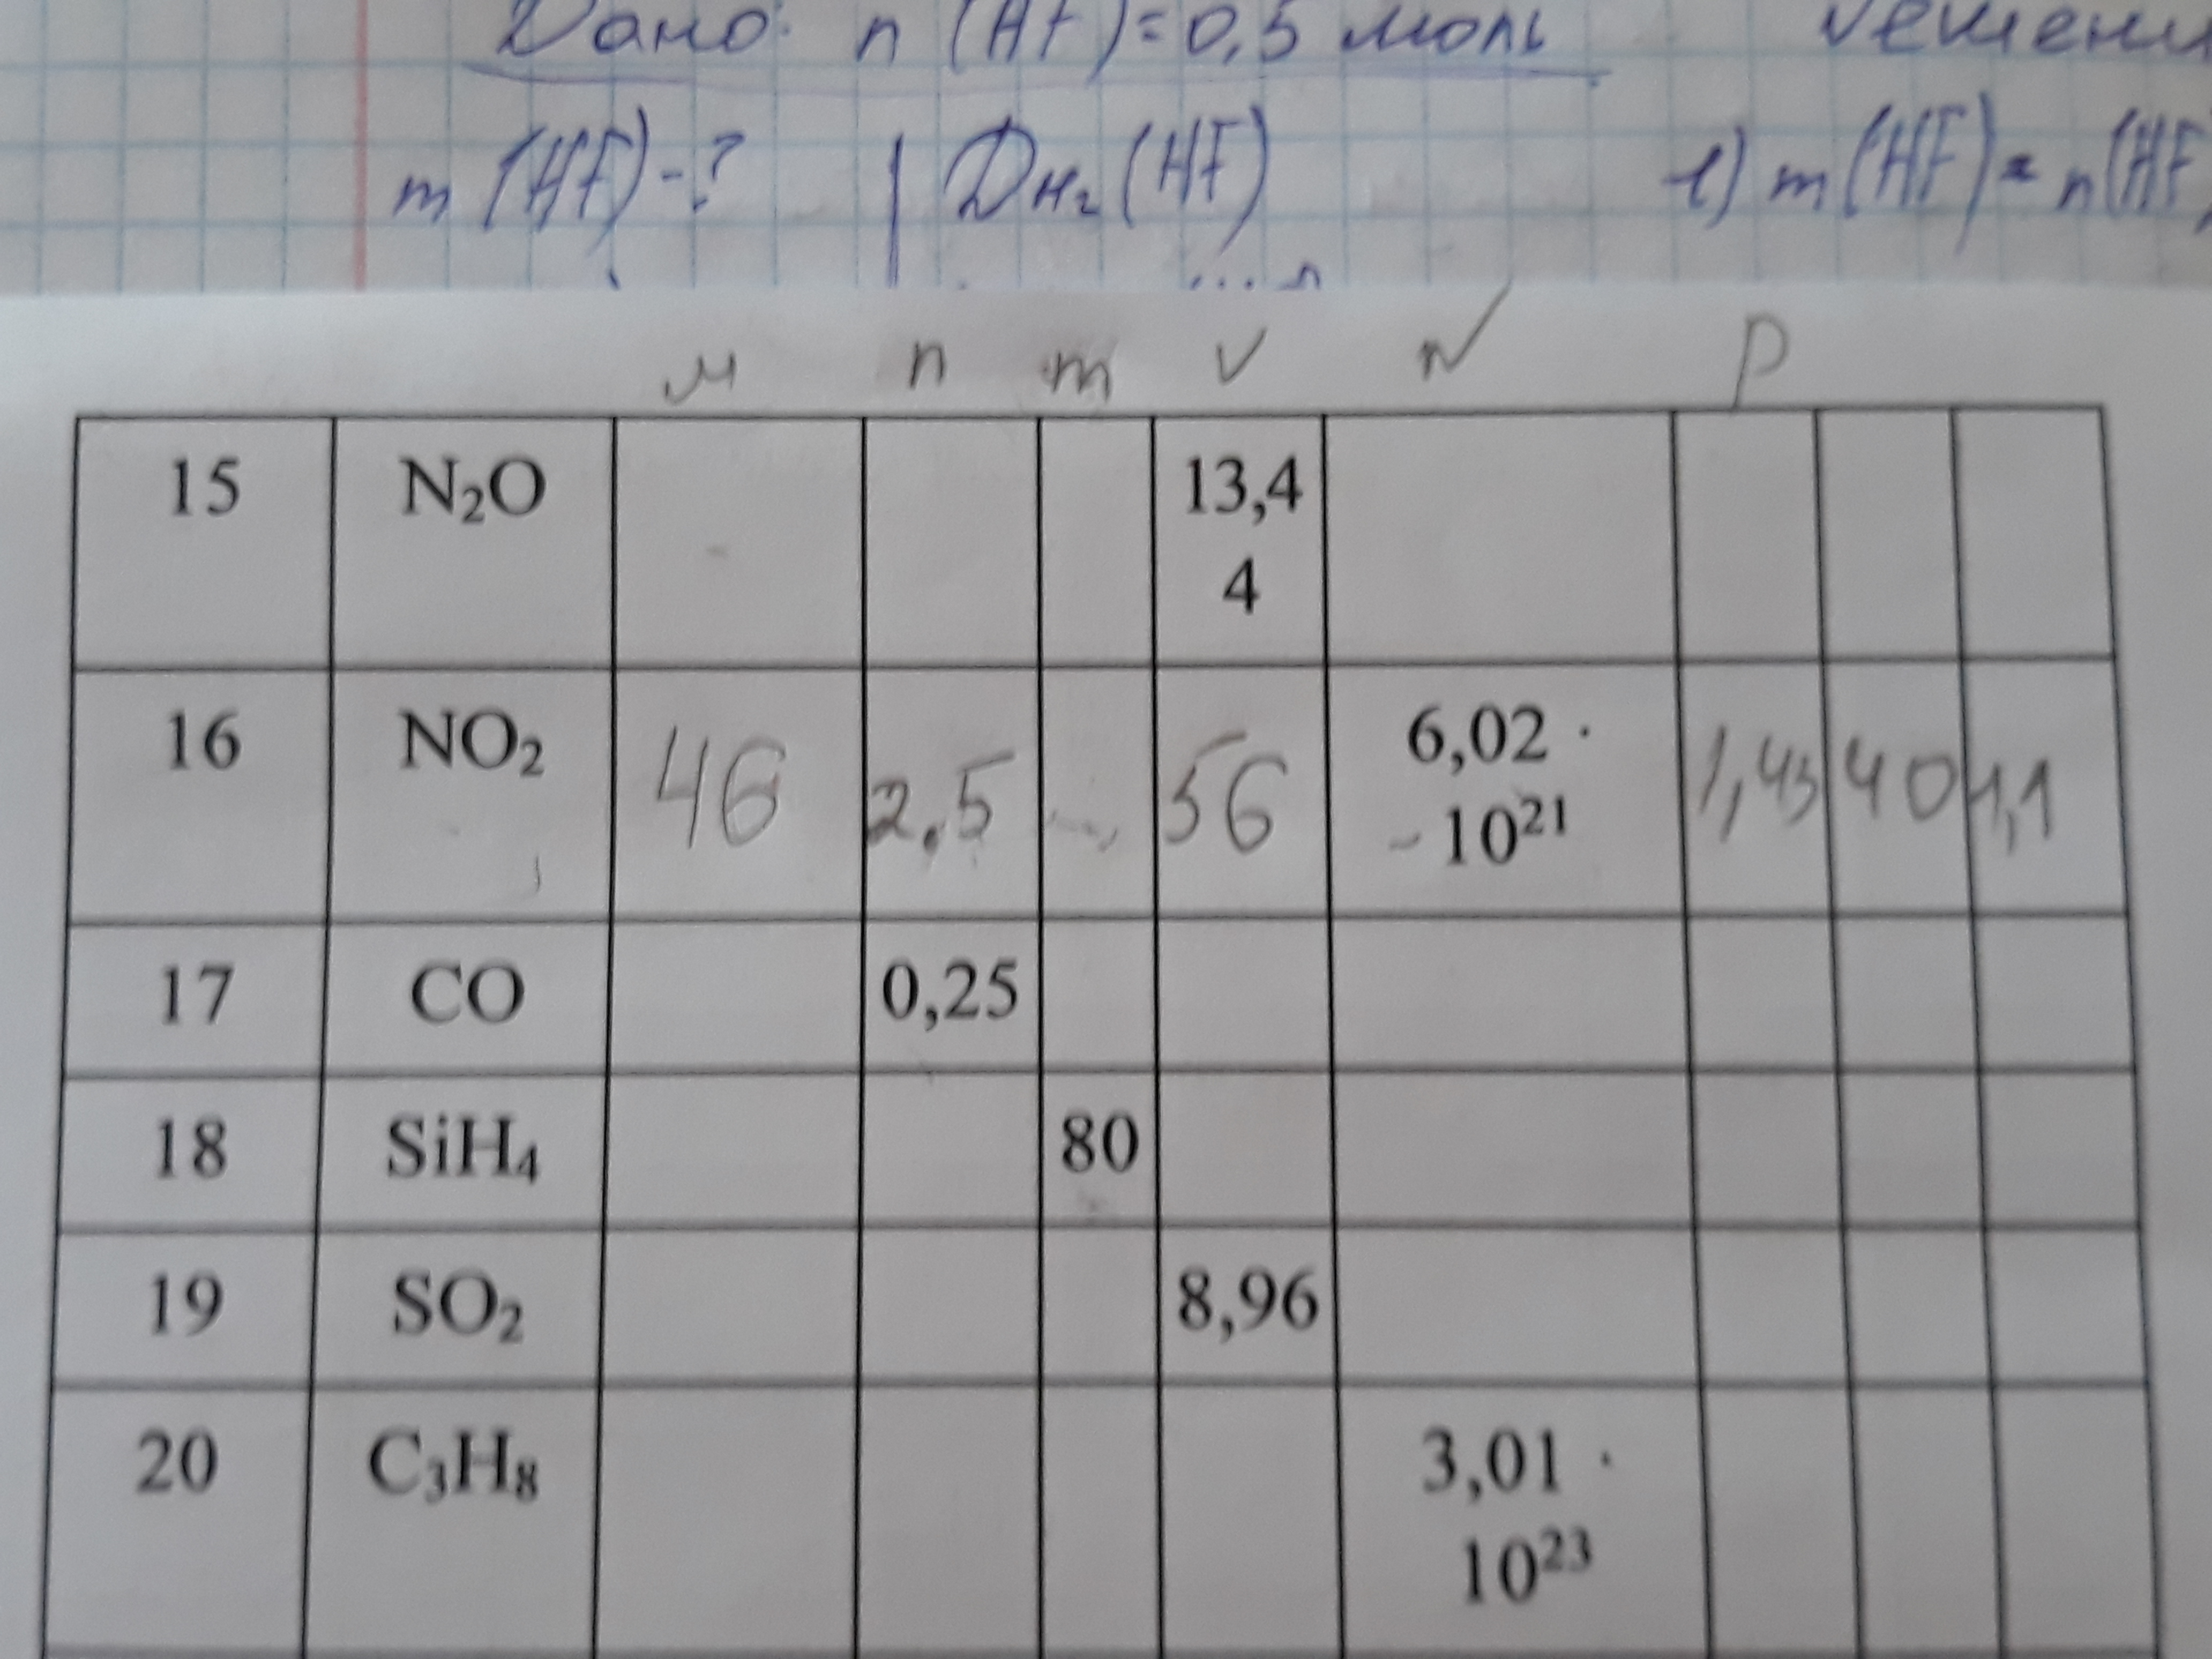 Дано: n (HF) = 0,5 моль
m (HF) - ? | Dн₂ (HF) 1) m (HF) = n (HF)
M n m V N ρ
15 N₂O 13,4
4
16 NO₂ 46 2,5 56 6,02 · 1,43 40 1,1
10²¹
17 CO 0,25
18 SiH₄ 80
19 SO₂ 8,96
20 C₃H₈ 3,01 ·
10²³